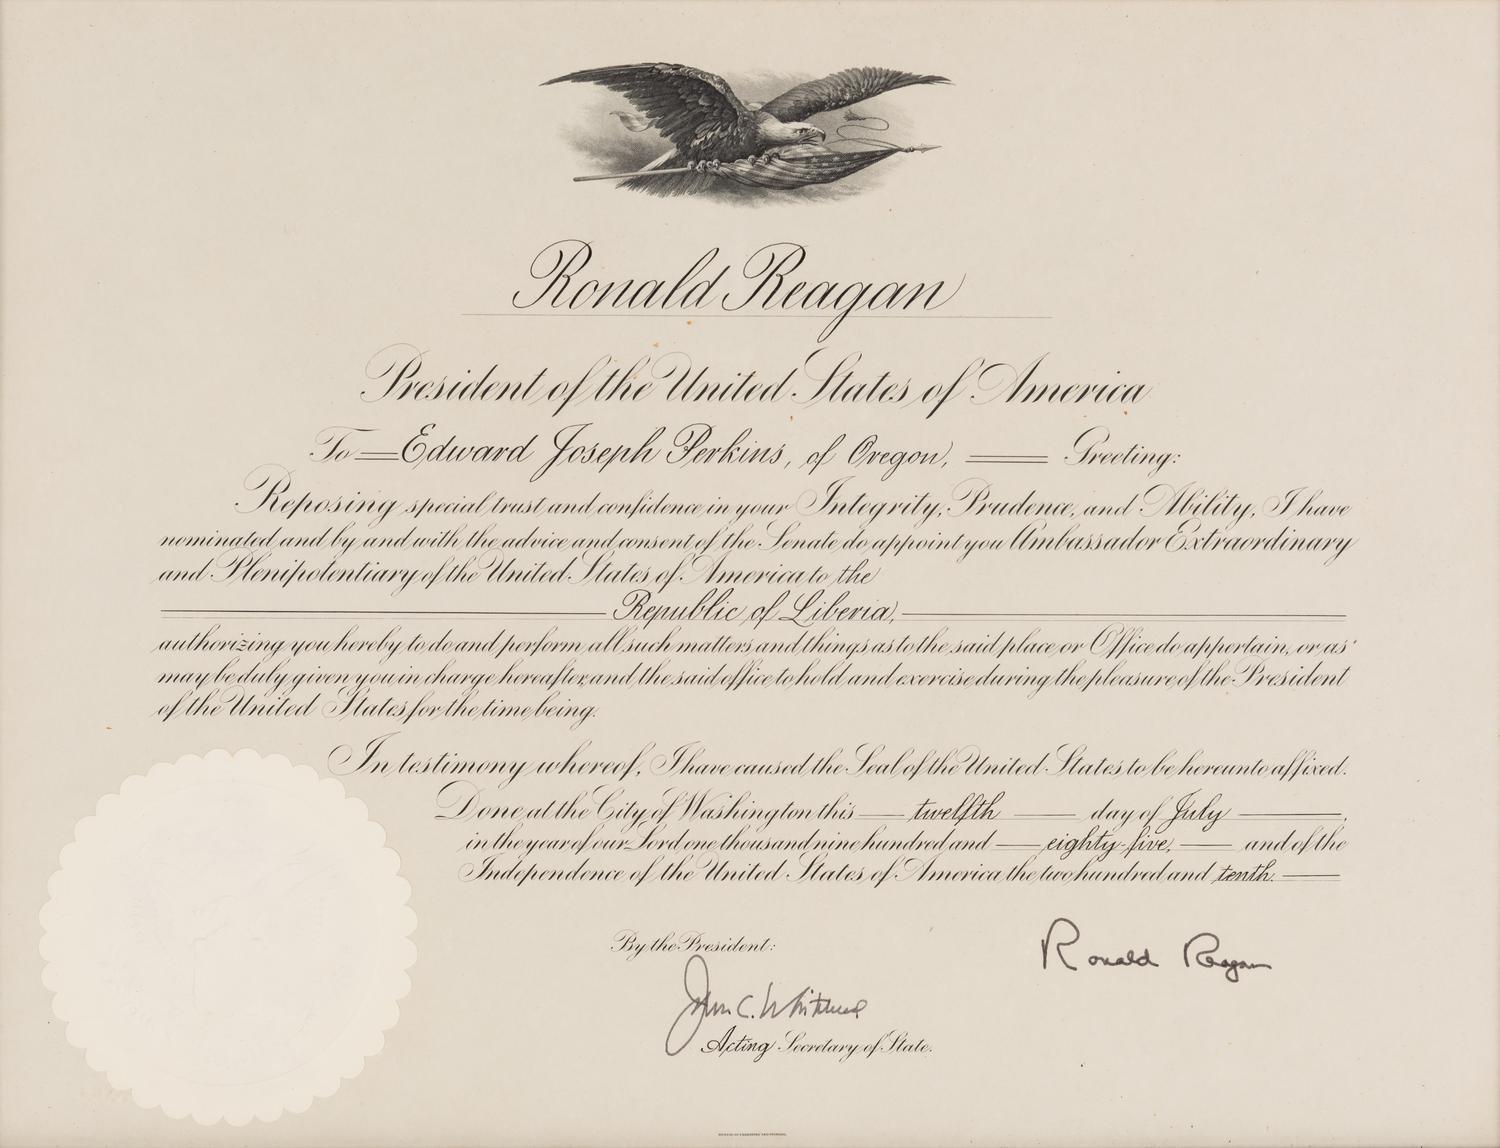 Ronald Reagan
President of the United States of America
To Edward Joseph Perkins, of Oregon, Greeting:
Reposing special trust and confidence in your Integrity, Prudence, and Ability, I have
nominated and by and with the advice and consent of the Senate do appoint you Ambassador Extraordinary
and Plenipotentiary of the United States of America to the
Republic of Liberia,
authorizing you hereby to do and perform all such matters and things as to the said place or Office do appertain, or as
may be duly given you in charge hereafter, and the said office to hold and exercise during the pleasure of the President
of the United States for the time being.
In testimony whereof, I have caused the Seal of the United States to be hereunto affixed.
Done at the City of Washington this twelfth day of July ,
in the year of our Lord one thousand nine hundred and eighty-five, and of the
Independence of the United States of America the two hundred and tenth.
By the President:
Ronald Reagan
John C. Whitehead
Acting Secretary of State.